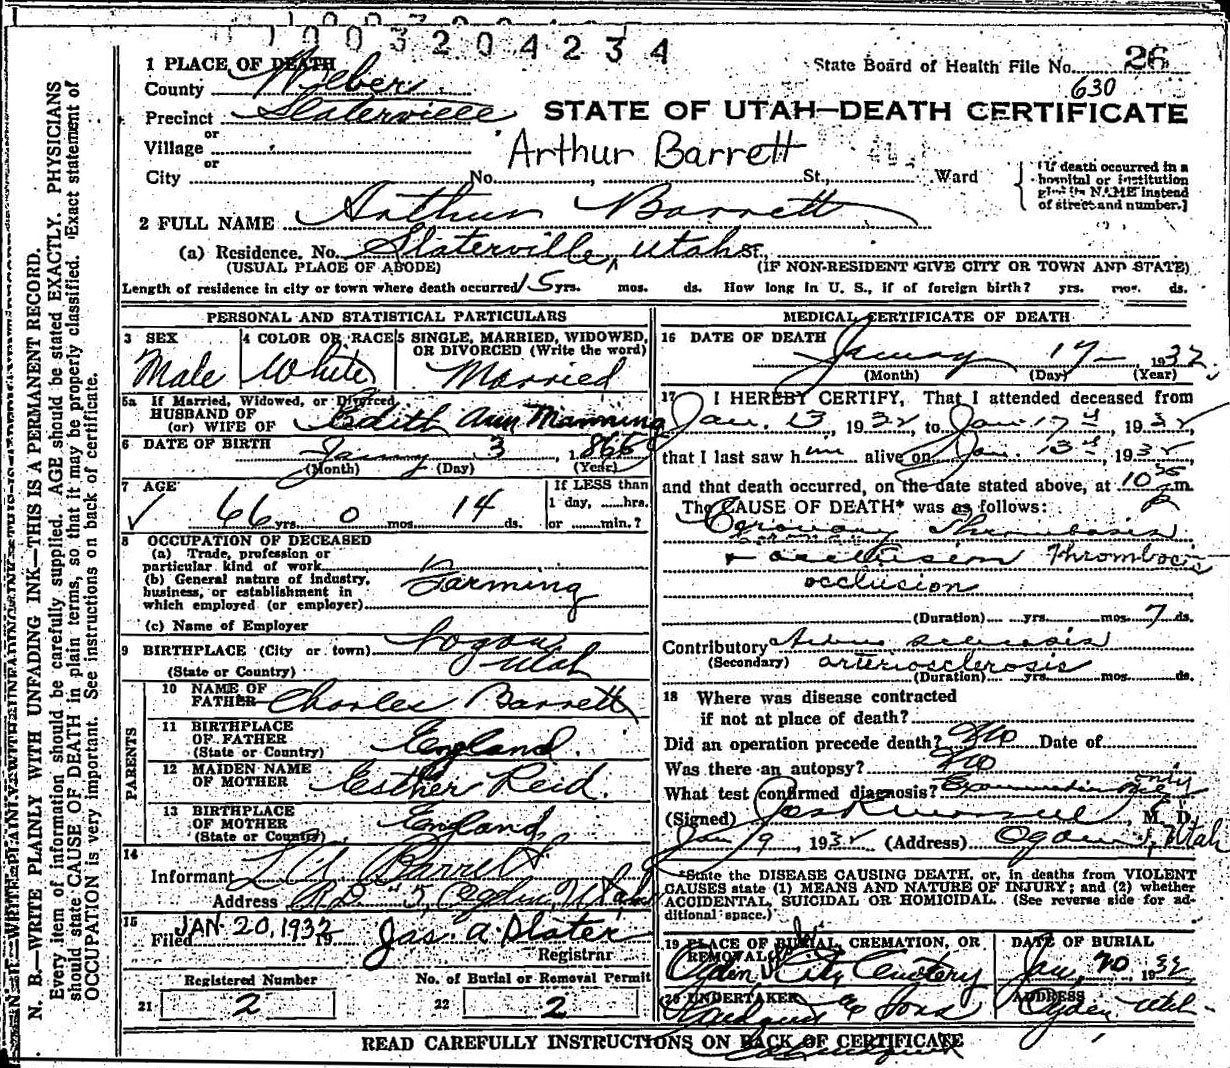 1003204234
1 PLACE OF DEATH
State Board of Health File No. 26
County Weber
630
Precinct Slaterville
STATE OF UTAH—DEATH CERTIFICATE
or
Village
Arthur Barrett
or
City No. St., Ward
[If death occurred in a
hospital or institution
give its NAME instead
of street and number.]
2 FULL NAME Arthur Barrett
(a) Residence. No. Slaterville, Utah St.
(USUAL PLACE OF ABODE) (IF NON-RESIDENT GIVE CITY OR TOWN AND STATE)
Length of residence in city or town where death occurred 15 yrs. mos. ds. How long in U. S., if of foreign birth? yrs. mos. ds.
PERSONAL AND STATISTICAL PARTICULARS
3 SEX
Male
4 COLOR OR RACE
White
5 SINGLE, MARRIED, WIDOWED,
OR DIVORCED (Write the word)
Married
5a If Married, Widowed, or Divorced
HUSBAND OF
(or) WIFE OF Edith Ann Manning
6 DATE OF BIRTH January 3, 1866
(Month) (Day) (Year)
7 AGE
✓ 66 yrs. 0 mos. 14 ds.
If LESS than
1 day, ......hrs.
or ......min.?
8 OCCUPATION OF DECEASED
(a) Trade, profession or
particular kind of work
(b) General nature of industry,
business, or establishment in
which employed (or employer)
Farming
(c) Name of Employer
9 BIRTHPLACE (City or town) Logan
Utah
(State or Country)
PARENTS
10 NAME OF
FATHER Charles Barrett
11 BIRTHPLACE
OF FATHER
(State or Country) England.
12 MAIDEN NAME
OF MOTHER Esther Reid.
13 BIRTHPLACE
OF MOTHER
(State or Country) England
14
Informant Barrett
Address R.D. #5, Ogden, Utah
15
Filed JAN 20, 1932 19 Jas. A. Slater
Registrar
Registered Number
21 2
No. of Burial or Removal Permit
22 2
MEDICAL CERTIFICATE OF DEATH
16 DATE OF DEATH
January 17 1932
(Month) (Day) (Year)
17 I HEREBY CERTIFY, That I attended deceased from
Jan. 13, 1932, to Jan 17th, 1932,
that I last saw him alive on Jan. 13th, 1932,
and that death occurred, on the date stated above, at 10 p m.
The CAUSE OF DEATH* was as follows:
Coronary Thrombosis
+ occlusion Thrombosis
occlusion
(Duration) yrs. mos. 7 ds.
Contributory Arterio sclerosis
(Secondary) arteriosclerosis
(Duration) yrs. mos. ds.
18 Where was disease contracted
if not at place of death?
Did an operation precede death? No Date of
Was there an autopsy? No
What test confirmed diagnosis? Examination only
(Signed) M. D.
Jan 19, 1932 (Address) Ogden, Utah
*State the DISEASE CAUSING DEATH, or, in deaths from VIOLENT
CAUSES state (1) MEANS AND NATURE OF INJURY; and (2) whether
ACCIDENTAL, SUICIDAL OR HOMICIDAL. (See reverse side for ad-
ditional space.)
19 PLACE OF BURIAL, CREMATION, OR
REMOVAL
Ogden City Cemetery
DATE OF BURIAL
Jan, 20 1932
20 UNDERTAKER
& Sons
ADDRESS
Ogden Utah
READ CAREFULLY INSTRUCTIONS ON BACK OF CERTIFICATE
N. B.—WRITE PLAINLY WITH UNFADING INK—THIS IS A PERMANENT RECORD.
Every item of information should be carefully supplied. AGE should be stated EXACTLY. PHYSICIANS
should state CAUSE OF DEATH in plain terms, so that it may be properly classified. Exact statement of
OCCUPATION is very important. See instructions on back of certificate.